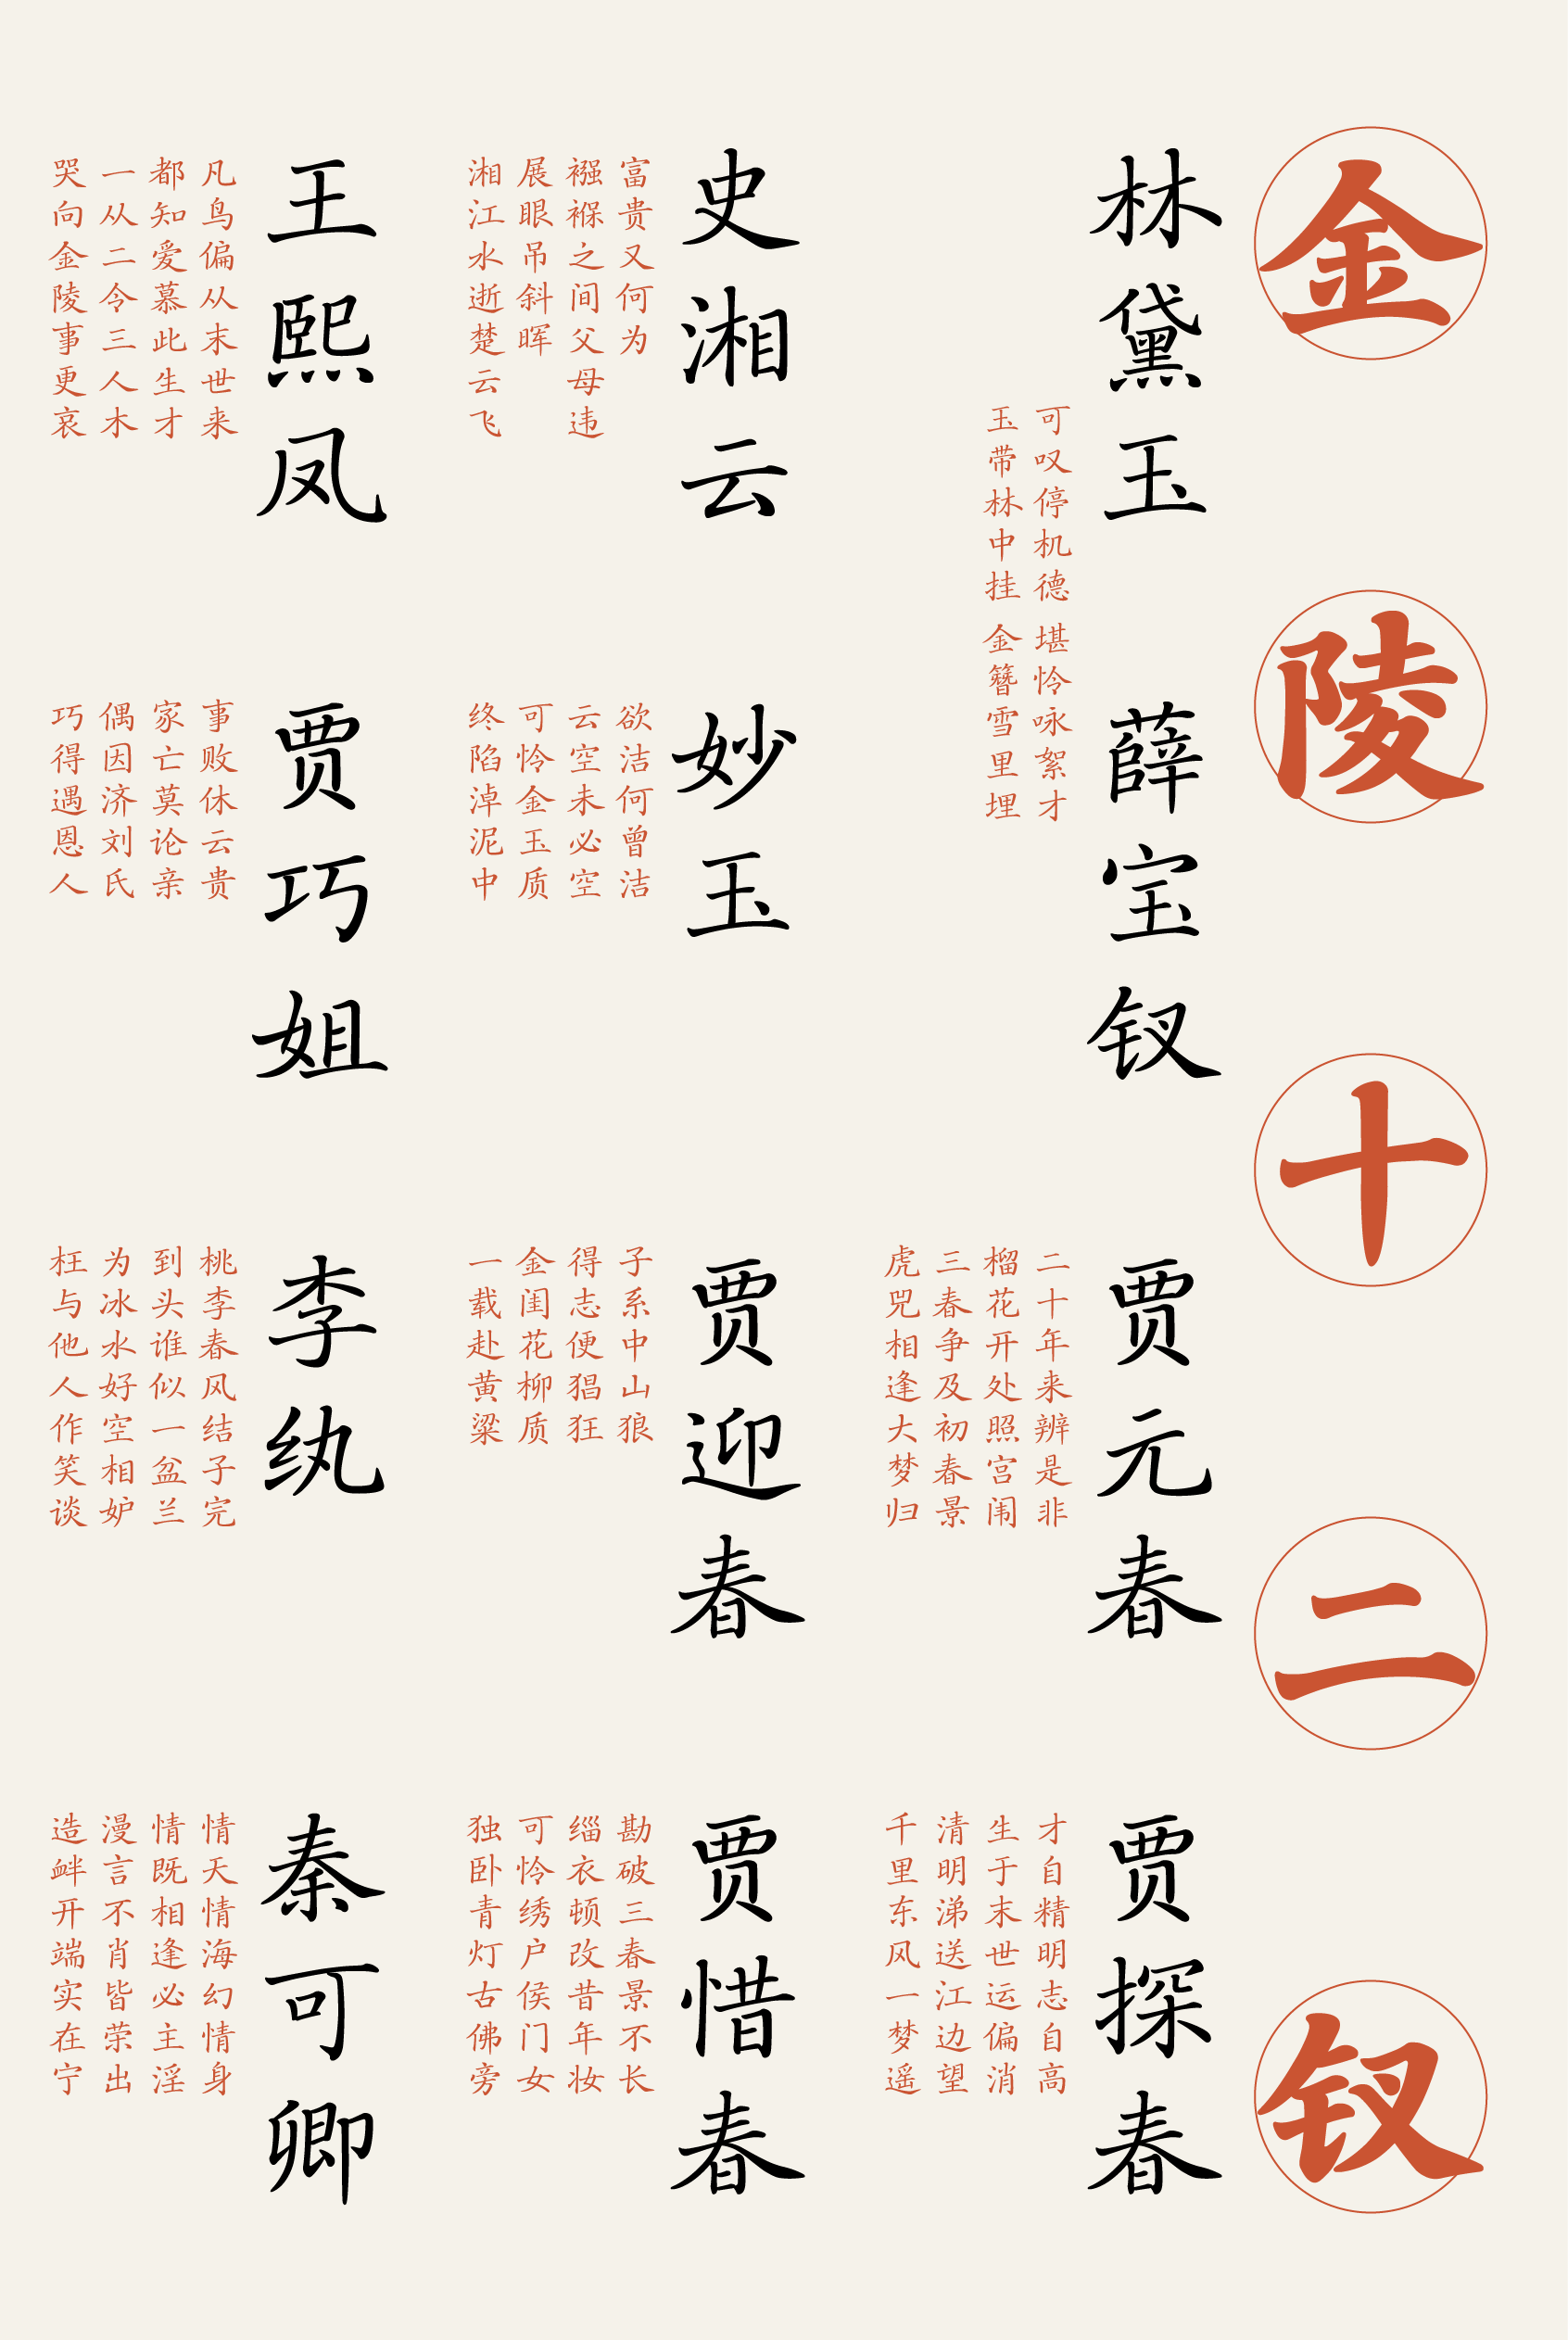 金陵十二钗
林黛玉
薛宝钗
可叹停机德
堪怜咏絮才
玉带林中挂
金簪雪里埋
贾元春
二十年来辨是非
榴花开处照宫闱
三春争及初春景
虎兕相逢大梦归
贾探春
才自精明志自高
生于末世运偏消
清明涕送江边望
千里东风一梦遥
史湘云
富贵又何为
襁褓之间父母违
展眼吊斜晖
湘江水逝楚云飞
妙玉
欲洁何曾洁
云空未必空
可怜金玉质
终陷淖泥中
贾迎春
子系中山狼
得志便猖狂
金闺花柳质
一载赴黄粱
贾惜春
勘破三春景不长
缁衣顿改昔年妆
可怜绣户侯门女
独卧青灯古佛旁
王熙凤
凡鸟偏从末世来
都知爱慕此生才
一从二令三人木
哭向金陵事更哀
贾巧姐
事败休云贵
家亡莫论亲
偶因济刘氏
巧得遇恩人
李纨
桃李春风结子完
到头谁似一盆兰
为冰水好空相妒
枉与他人作笑谈
秦可卿
情天情海幻情身
情既相逢必主淫
漫言不肖皆荣出
造衅开端实在宁